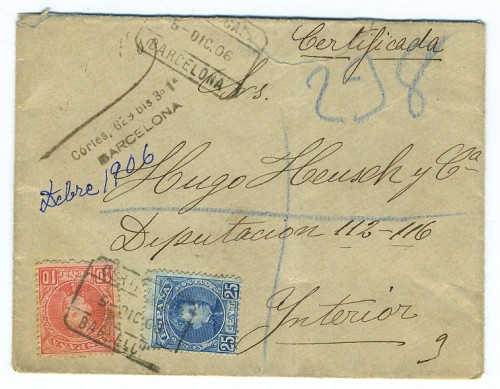 5-DIC.06
BARCELONA
Certificada
258
Srs.
Córtes, 629 bis 3º 1ª
BARCELONA
Dcbre 1906
Hugo Heusch y Cª
Diputacion 112-116
Interior
9
10
5-DIC.06
BARCELONA
ESPAÑA
25
25